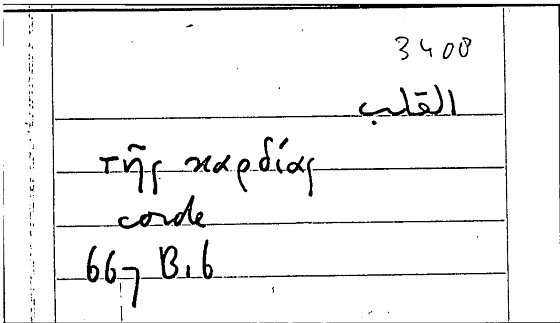 3408
القلب
τῆς καρδίας
corde
667 B.6